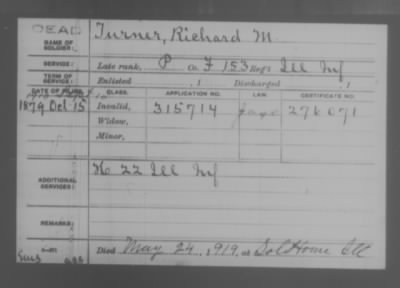 DEAD
NAME OF SOLDIER: Turner, Richard M.
SERVICE: Late rank, P Co. F 153 Reg't Ill Inf
TERM OF SERVICE: Enlisted , 1 Discharged , 1
DATE OF FILING. CLASS. APPLICATION NO. LAW. CERTIFICATE NO.
1879 Oct 15 Invalid, 315714 276671
Widow,
Minor,
ADDITIONAL SERVICES: H 22 Ill Inf
REMARKS:
Died May 24, 1919, at Sol Home Ill